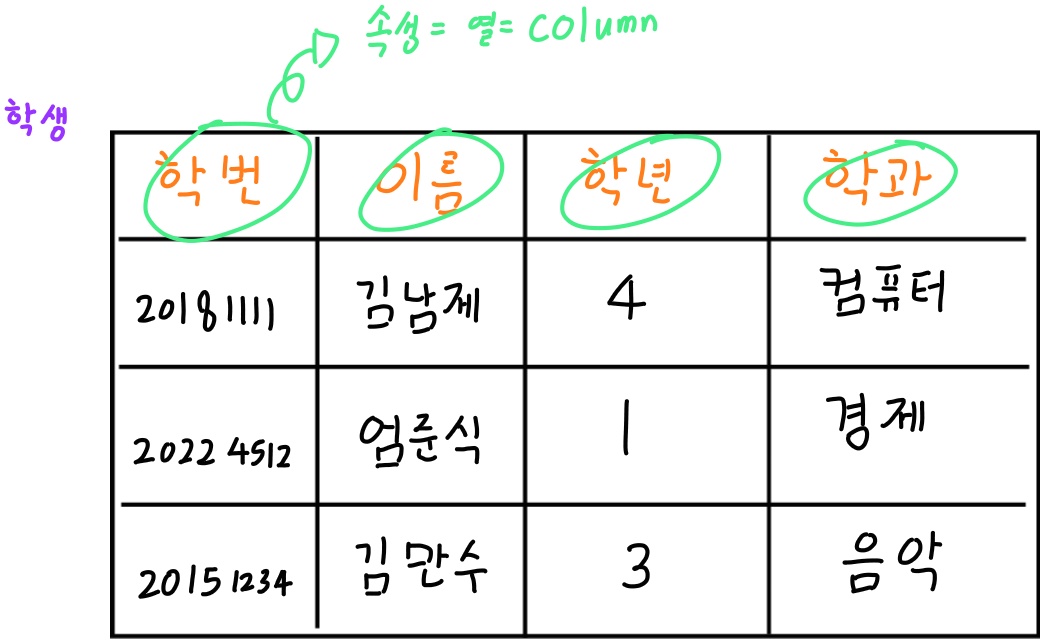 속성 = 열 = column
학생
학번 이름 학년 학과
20181111 김남제 4 컴퓨터
20224512 엄준식 1 경제
20151234 김만수 3 음악